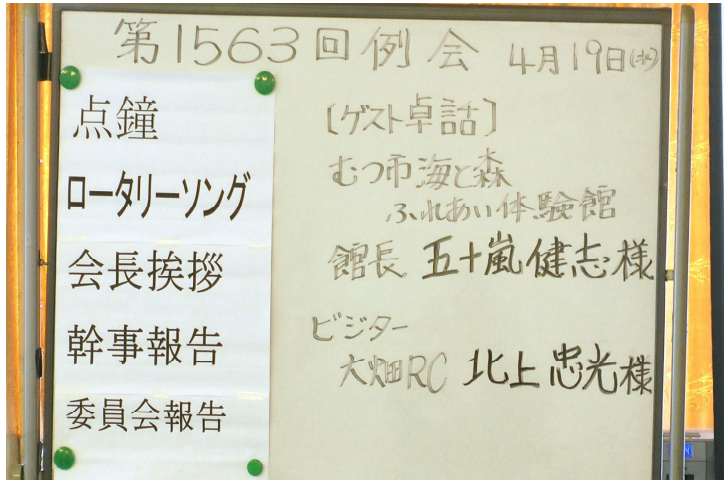 第1563回例会 4月19日(水)
点鐘
ロータリーソング
会長挨拶
幹事報告
委員会報告
[ゲスト卓話]
むつ市海と森
ふれあい体験館
館長 五十嵐健志様
ビジター
大畑RC 北上忠光様